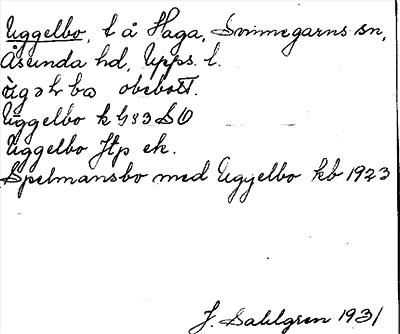 Uggelbo, l å Haga, Svinnegarns sn,
Åsunda hd, Upps. l.
obebott.
Uggelbo k G83 SO
Uggelbo Jtp ek.
Spelmansbo med Uggelbo kb 1923
J. Sahlgren 1931